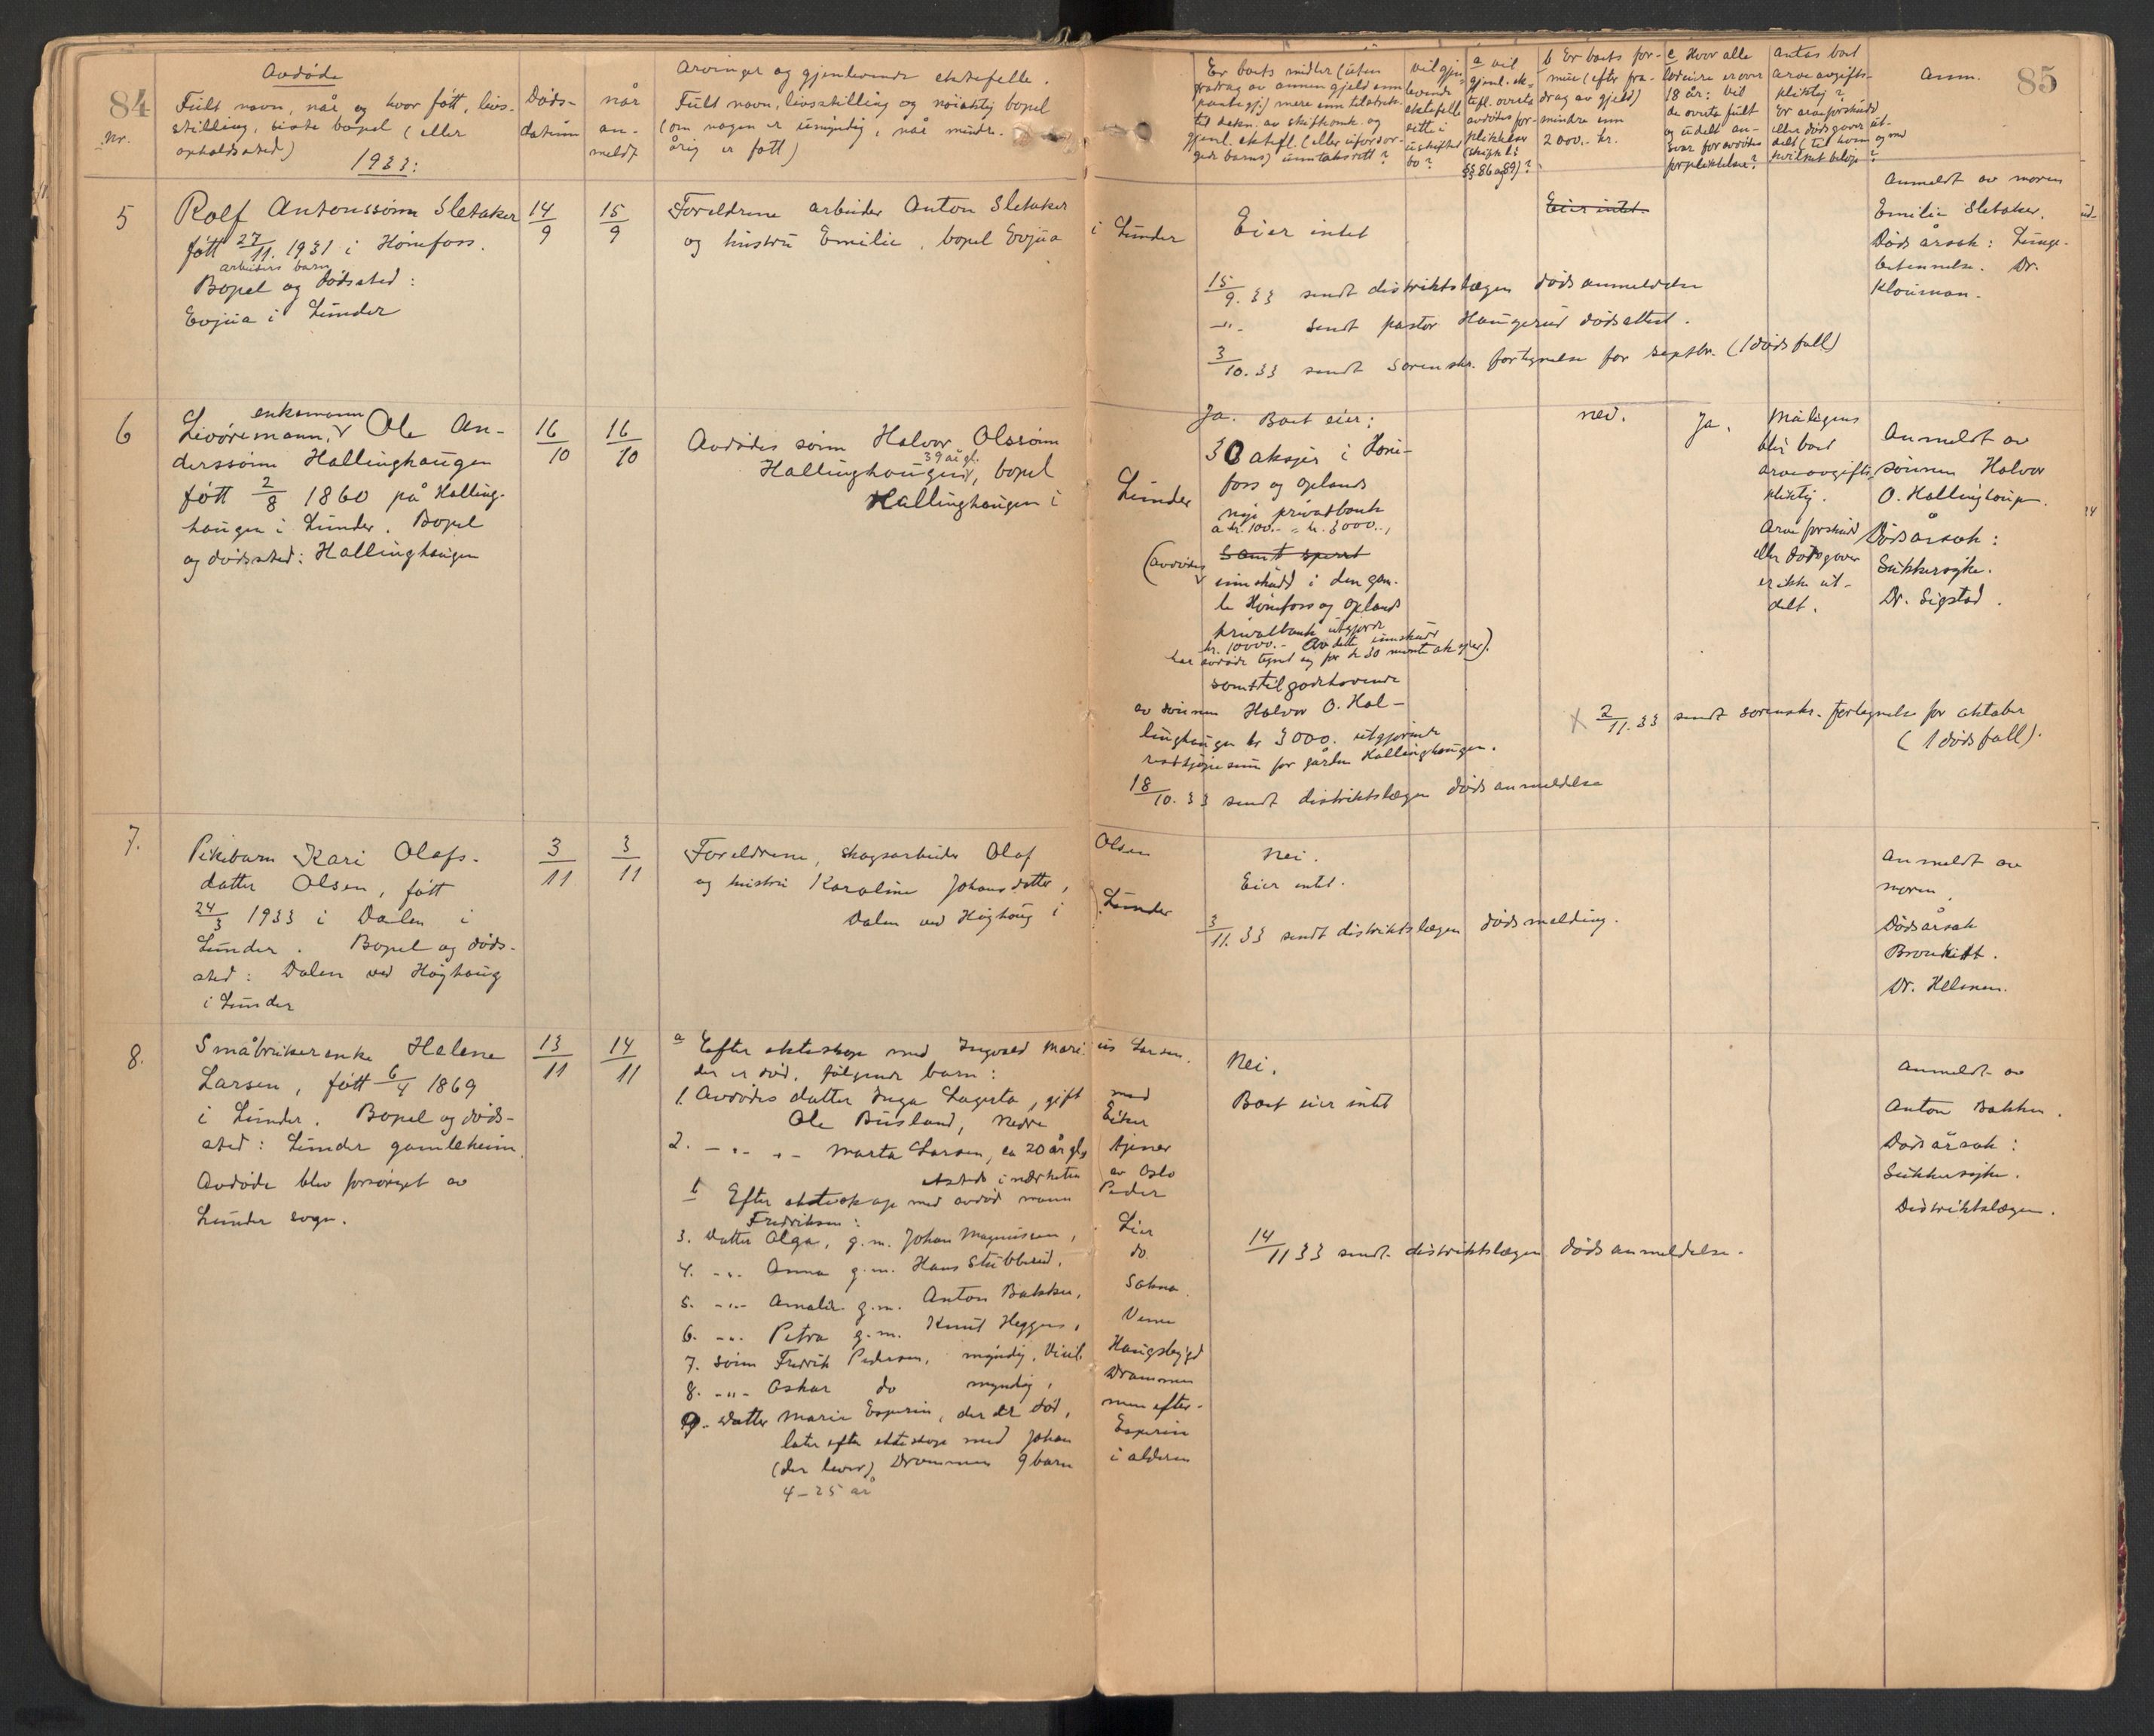 84
Nr.
Avdøde
Fullt navn, når og hvor født, livs-
stilling, siste bopel (eller
opholdssted)
1933:
Døds-
datum
når
an-
meldt
Arvinger og gjenlevende ektefelle.
Fullt navn, livsstilling og nøiaktig bopel
(om nogen er umyndig, når mindre-
årig er født)
Er boets midler (uten
fradrag av annen gjeld enn
pantegj.) mere enn tilstrek.
til dekn. av skifteomk. og
gjenl. ektefl. (eller uforsør-
gede barns) unntaksrett?
vil gjen-
levende
ektefelle
sitte i
uskiftet
bo?
a vil
gjenl. ek-
tefl. overta
avdødes for-
pliktelser
(skiftel.
§§ 86 og 89)?
b Er boets for-
mue (efter fra-
drag av gjeld)
mindre enn
2000.- kr.
c Hvor alle
loddeiere er over
18 år: vil
de overta fullt
og udelt an-
svar for avdødes
forpliktelser?
Antas boet
arveavgifts-
pliktig?
Er arveforskudd
eller dødsgaver ut-
delt (til hvem og med
hvilket beløp?
Anm.
85
5
Rolf Antonssønn Sletaker
født 27/11. 1931 i Hønefoss.
arbeiders barn
Bopel og dødssted:
Evjua i Lunder
14/9
15/9
Foreldrene arbeider Anton Sletaker
og hustru Emilie, bopel Evjua i Lunder
Eier intet
Eier intet.
15/9. 33 sendt distriktslægen dødsanmeldelse
-"- sendt pastor Haugerud dødsattest.
3/10. 33 sendt sorenskr. fortegnelse for septbr. (1 dødsfall)
Anmeldt av moren
Emilie Sletaker.
Dødsårsak: Lunge-
betennelse. Dr.
Klouman.
6
enkemann
Livøremann, Ole An-
derssønn Hallinghaugen
født 2/8 1860 på Halling-
haugen i Lunder. Bopel
og dødssted: Hallinghaugen
16/10
16/10
Avdødes sønn Halvor Olssønn
39 år gl.
Hallinghaugen, bopel
Hallinghaugen i Lunder
Ja. Boet eier:
30 aksjer i Høne-
foss og Oplands
nye privatbank
a kr. 100.- = kr. 3000.-,
samt sperret
(avdødes
innskudd i den gam-
le Hønefoss og Oplands
privatbank utgjorde
kr. 10000.- Av dette innskudd
har avdøde tegnet sig for de 30 nevnte aksjer).
samt tilgodehavende
av sønnen Halvor O. Hal-
linghaugen kr 3000. utgjørende
restkjøpesum for gården Hallinghaugen.
18/10. 33 sendt distriktslægen dødsanmeldelse
nei.
Ja.
Muligens
blir boet
arveavgifts-
pliktig.
Arveforskudd
eller dødsgaver
er ikke ut-
delt.
Anmeldt av
sønnen Halvor
O. Hallinghaugen.
Dødsårsak:
Sukkersyke.
Dr. Sigstad.
X 2/11. 33 sendt sorenskr. fortegnelse for oktober
(1 dødsfall).
7.
Pikebarn Kari Olafs-
datter Olsen, født
24/3 1933 i Dalen i
Lunder. Bopel og døds-
sted: Dalen ved Høghaug
i Lunder
3/11
3/11
Foreldrene, skogsarbeider Olaf Olsen
og hustru Karoline Johansdatter,
Dalen ved Høghaug i Lunder
Nei.
Eier intet.
3/11. 33 sendt distriktslægen dødsmelding.
Anmeldt av
moren.
Dødsårsak
Bronkitt.
Dr. Helsnen.
8.
Småbrukerenke Helene
Larsen, født 6/4 1869
i Lunder. Bopel og døds-
sted: Lunder gamleheim.
Avdøde blev forsørget av
Lunder sogn.
13/11
14/11
a Efter ekteskap med Ingvald Marius Larsen,
der er død, følgende barn:
1. Avdødes datter Inga Lagerta, gift med
Ole Busland, Nedre Eiker
2. -"- -"- Marta Larsen, ca 20 år gl., tjener
etsteds i nærheten av Oslo
b Efter ekteskap med avdød mann Peder
Fredriksen:
3. Datter Olga, g.m. Johan Magnussen, Lier
4. -"- Anna g.m. Hans Stubberud, do
5. -"- Amalie g.m. Anton Bakken, Sokna
6. -"- Petra g.m. Knut Heggen, Veme
7. sønn Fredrik Pedersen, myndig, Haugsbygd
8. -"- Oskar do myndig, Drammen
9. Datter Marie Esperin, der er død, men efter-
later efter ekteskap med Johan Esperin
(der lever), Drammen 9 barn i alderen
4-25 år
Nei.
Boet eier intet
14/11 33 sendt distriktslægen dødsanmeldelse.
Anmeldt av
Anton Bakken.
Dødsårsak:
Sukkersyke.
Distriktslægen.